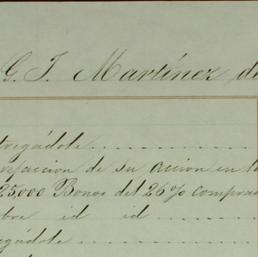 G. J. Martínez de
tregándole
refaccion de su accion en la
25,000 Bonos del 26% compra
bre id id
egándole